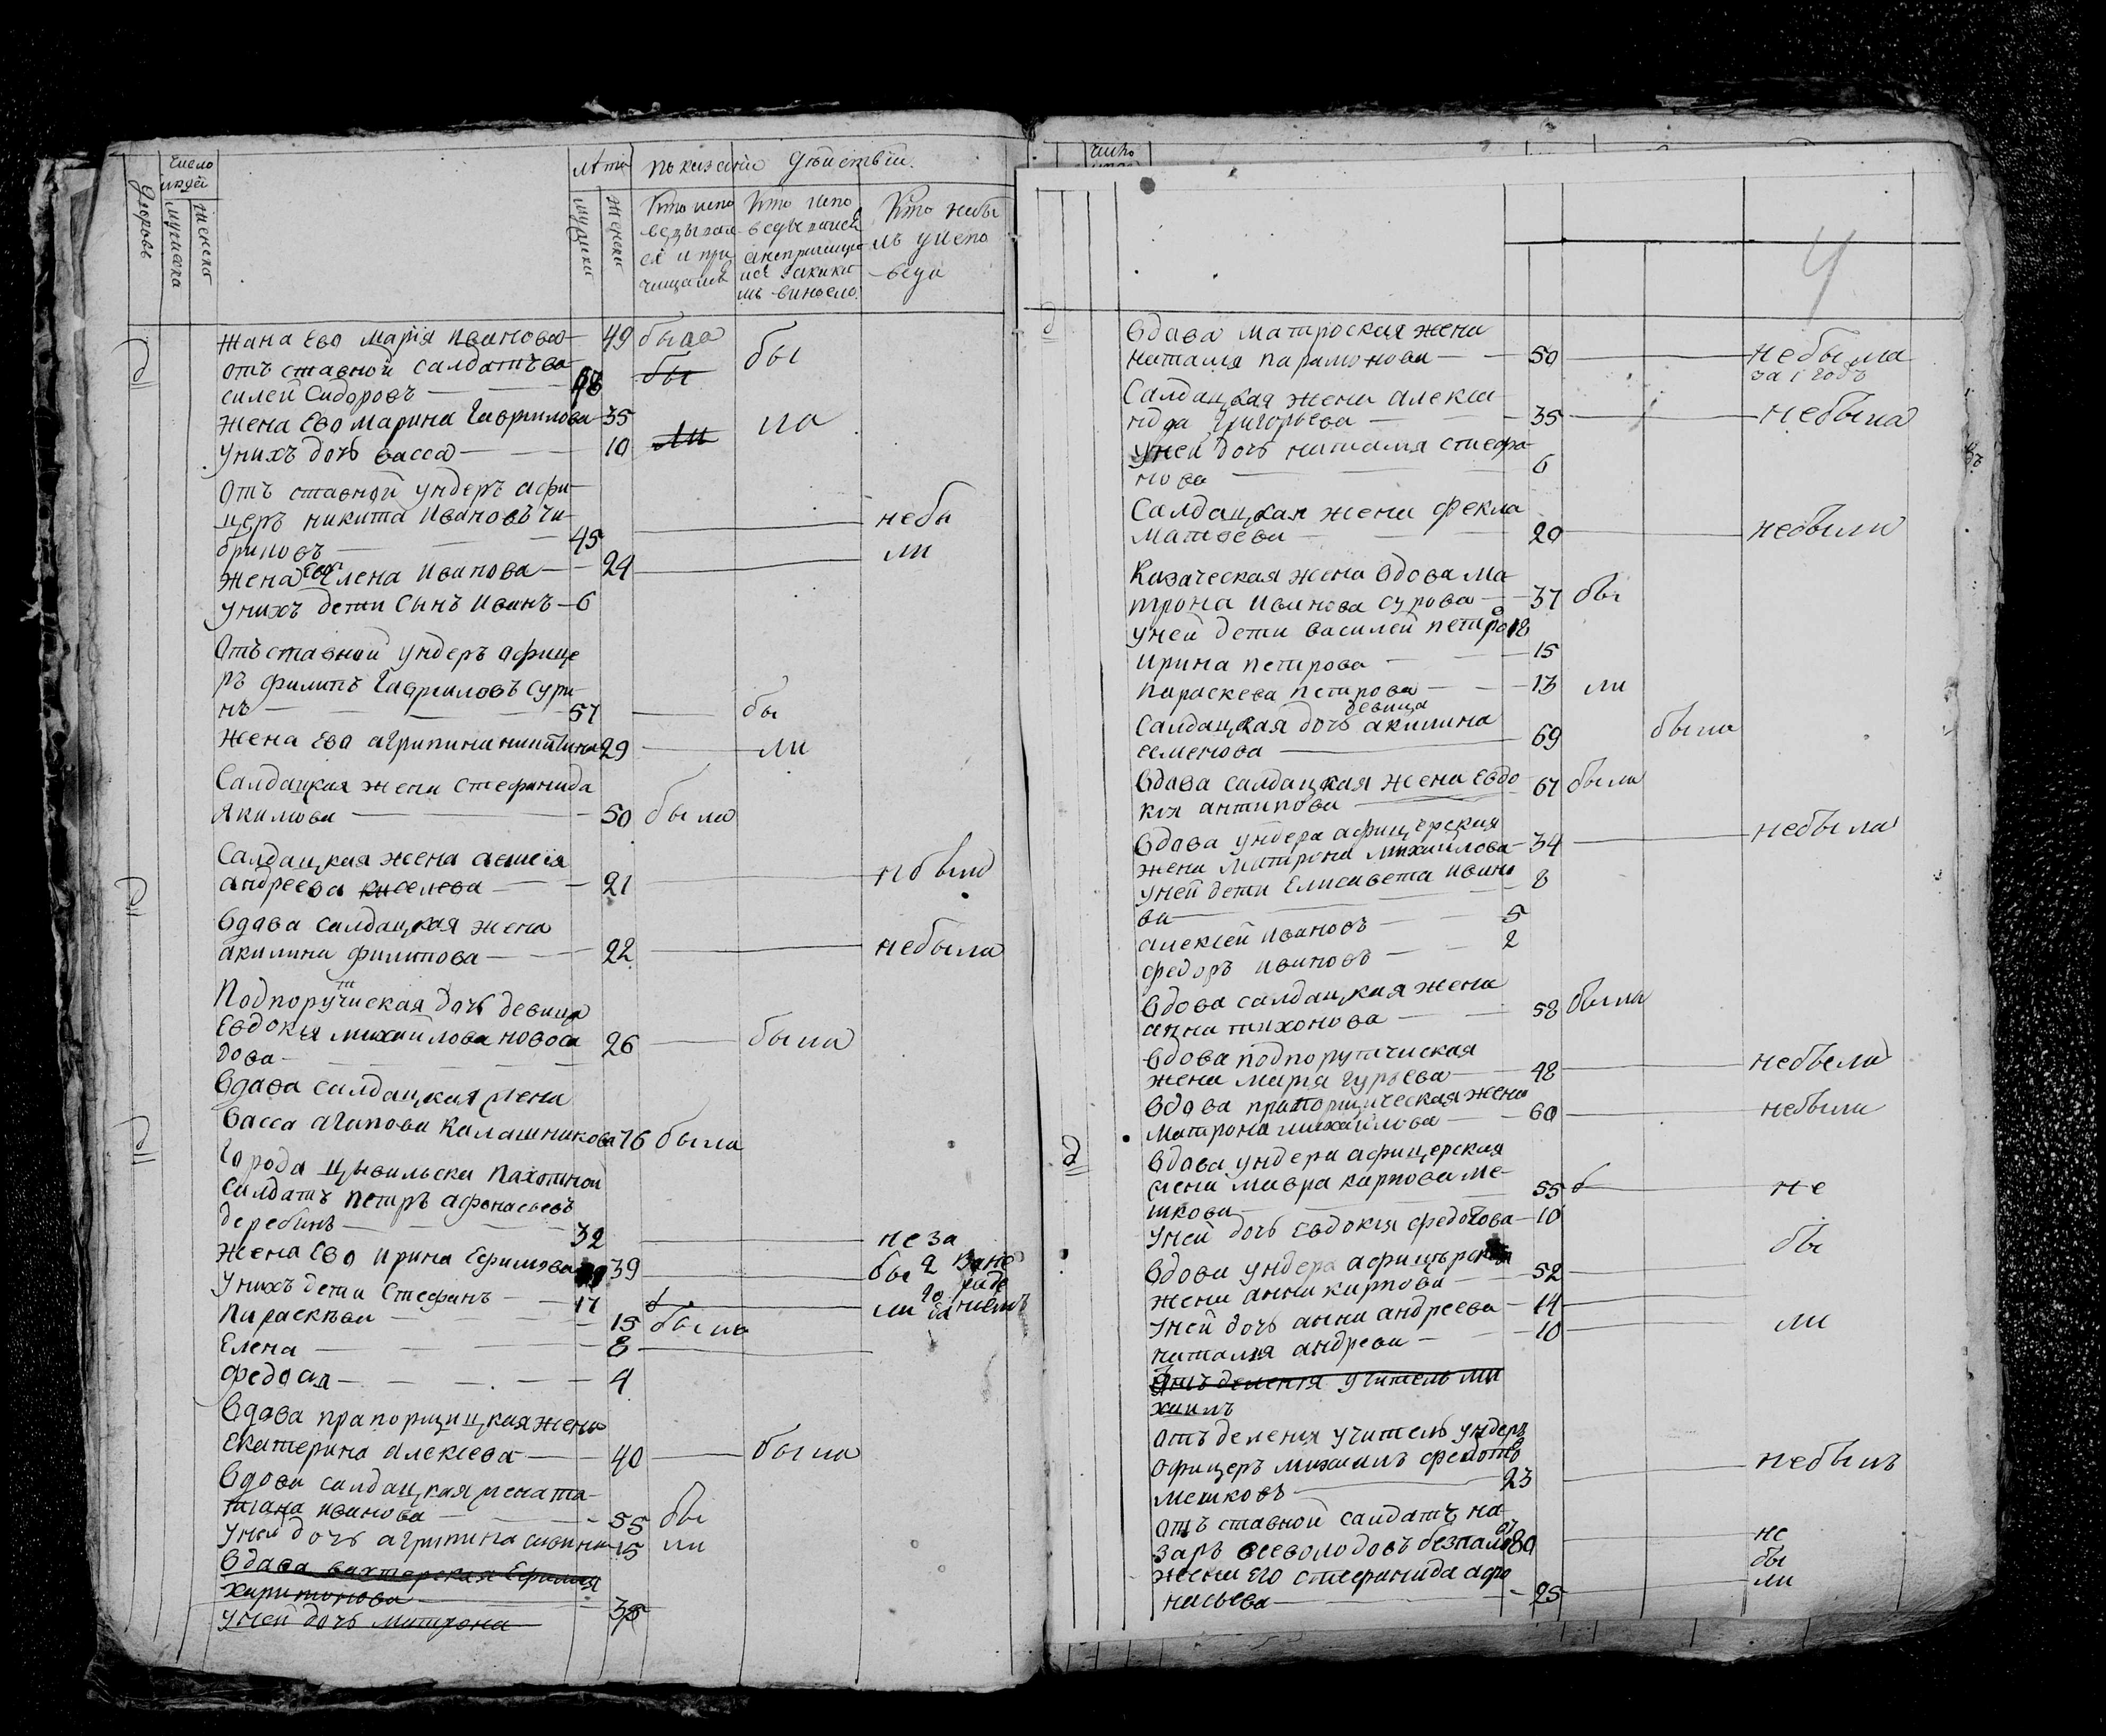 число
людей
лета
показание действіи.
Дворовъ
мужеска
женска
мужски
женски
Кто испо
ведывал
ся и при
чащался
Кто испо
ведывался
а непричаща
лся
Кто небы
лъ уиспо
веди
жана Ево марія Иванова 49 была
отъ ставной салдатъ ва
силей Сидоровъ 48 бы бы
Жена Ево марина Гаврилова 35
унихъ дочь васса 10 ли ла
отъ ставной ундеръ афи
церъ никита Ивановъ чи
бриковъ 45 небы
жена Ево Елена Иванова 24 ли
унихъ дети Сынъ Иванъ 6
Отъ ставной ундеръ афице
ръ филипъ Гавриловъ Сури
нъ 57 бы
жена Ево агрипина никитина 29 ли
Салдацкая жена стефанида
Якимова 50 была
Салдацкая жена
андреева киселева 21
Вдава салдацкая жена
акилина филипова 22 небыла
Подпоручиская дочь девица
Евдокія михайлова новоса
дова 26 была
Вдава салдацкая жена
Васса агапова Калашникова 76 была
Города цывильска пахотной
Салдатъ петръ афонасьевъ
деребинъ 32 не за
жена Ево ирина Ефимова 39 бы 2
Унихъ дети Стефанъ 17 ли
параскева 15 была
Елена 8
федося 4
Вдава прапорщицкая жена
Екатерина алексеева 40 была
Вдова салдацкая жена та
тиана иванова 55 бы
Уней дочь агрипина савина 15 ли
Вдава вахтерская Ефимия
харитонова 35
уней дочь матрона
4
Вдава матроская жена
наталя парамонова 50 небыла
за 1 годъ
Салдацкая жена алекса
ндра Григорьева 35 небыла
уней дочь наталя стефа
нова 6
Салдацкая жена фекла
матвеева 20 небыла
Казаческая жена вдова ма
трона иванова сурова 37 бы
уней дети василей петро 18
ирина петрова 15
параскева петрова 13 ли
девица
Салдацкая дочь акилина
семенова 69 была
Вдава салдацкая жена Евдо
кія антипова 67 была
Вдава ундера афицерская
жена матрона михайлова 34 небыла
уней дети Елисавета ивано
ва 8
алексей ивановъ 5
федоръ ивановъ 2
Вдова салдацкая жена
анна тихонова 58 была
Вдова подпорутчиская
жена марія гурьева 48 небыла
Вдова прапорщическая жена
матрона михайлова 60 небыла
Вдава ундера афицерская
жена мавра карпова ме
шкова 55 не
Уней дочь евдокія федотова 10
Вдова ундера афицерская бы
жена анна карпова 52
Уней дочь анна андреева 14
наталия андреева 10 ли
Отъ деления учитель ми
хаилъ
Отъ деления учитель ундеръ
офицеръ михаилъ федотовъ
мешковъ 23 небылъ
Отъ ставной салдатъ на
заръ всеволодовъ безпаловъ 80 не
бы
жена его стефанида афо
насьева 25 ли